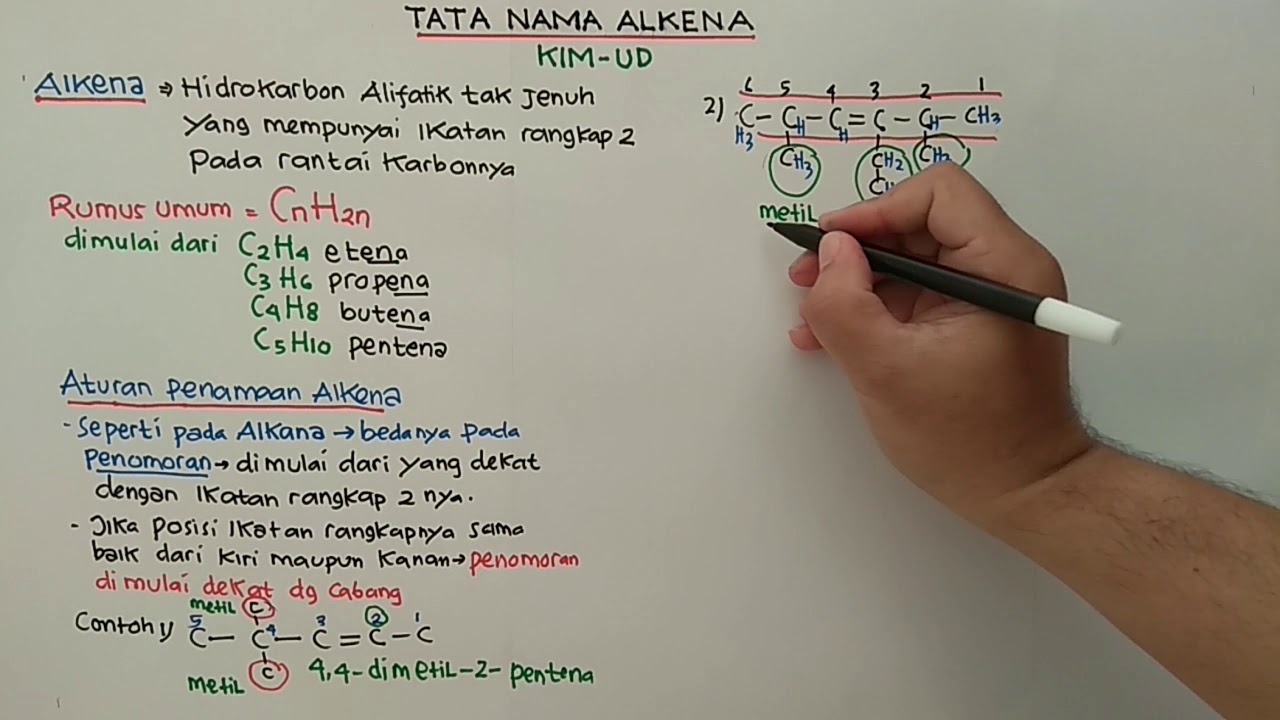 TATA NAMA ALKENA
KIM-UD
Alkena ⇒ Hidrokarbon Alifatik tak Jenuh
yang mempunyai Ikatan rangkap 2
Pada rantai Karbonnya
Rumus umum = CnH2n
dimulai dari C2H4 etena
C3H6 propena
C4H8 butena
C5H10 pentena
Aturan Penamaan Alkena
- Seperti pada Alkana → bedanya pada
Penomoran → dimulai dari yang dekat
dengan Ikatan rangkap 2 nya.
- Jika posisi Ikatan rangkapnya sama
baik dari kiri maupun Kanan → penomoran
dimulai dekat dg cabang
metil C
5 4 3 2 1
Contoh 1) C – C – C = C – C
C
metil 4,4-dimetil-2-pentena
6 5 4 3 2 1
2) C – CH – C = C – CH – CH3
H3 H
CH3 CH2 CH2
metil